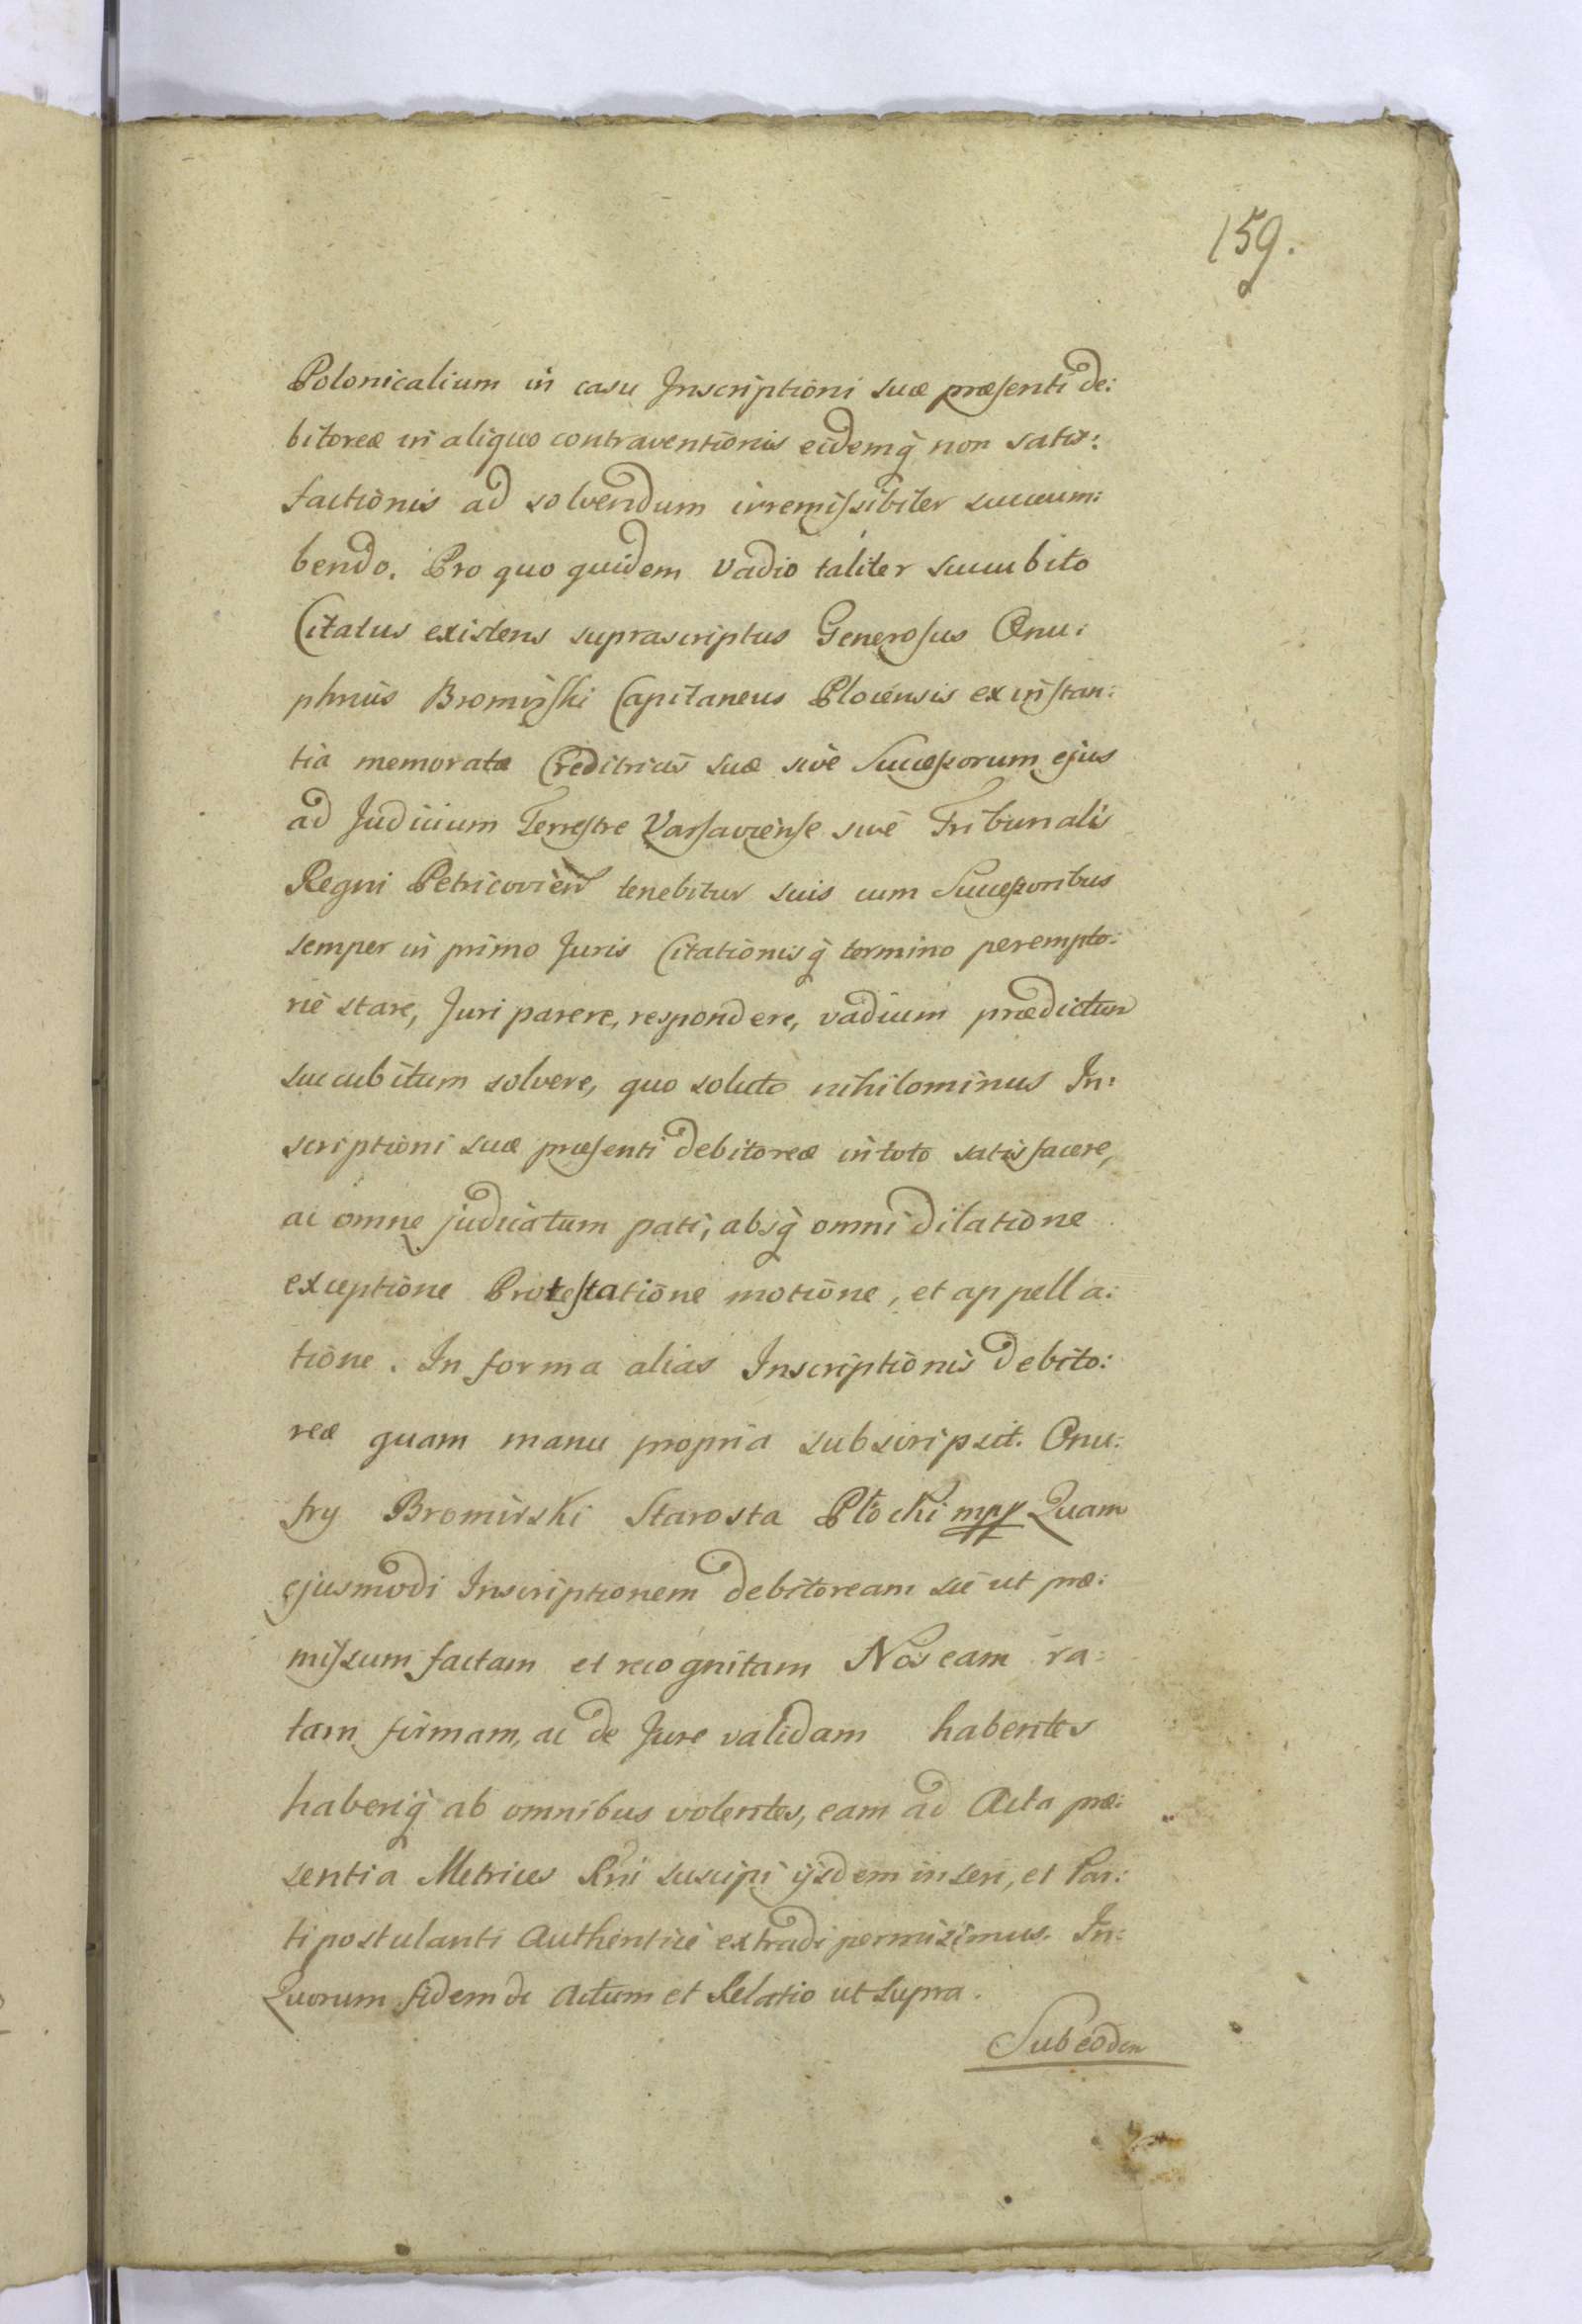 159.
Polonicalium in casu Inscriptioni suæ præsenti de:
bitoreæ in aliquo contraventionis eidemq̃ non satis:
factionis ad solvendum irremissibiter succum:
bendo. Pro quo quidem vadio taliter succubito
Citatus existens suprascriptus Generosus Onu:
phrius Bromirski Capitaneus Plocensis ex instan:
tia memoratæ Creditricis suæ sivè Successorum ejus
ad Judicium Terrestre Varsaviense sivè Tribunalis
Regni Petricovien tenebitur suis cum Successoribus
semper in primo Juris Citationisq̃ termino perempto:
riè stare, Juri parere, respondere, vadium prædictum
succubitum solvere, quo soluto nihilominus In:
scriptioni suæ præsenti debitoreæ in toto satisfacere,
ac omne judicatum pati, absq̃ omni dilatione
exceptione Protestatione motione, et appella:
tione. In forma alias Inscriptionis debito:
reæ quam manu propria subscripsit. Onu:
fry Bromirski Starosta Płocki mpp Quam
ejusmodi Inscriptionem debitoream sic ut præ:
missum factam et recognitam Nos eam ra:
tam firmam, ac de Jure validam habentes
haberiq̃ ab omnibus volentes, eam ad Acta præ:
sentia Metrices Rni suscipi ijsdem inseri, et Par:
ti postulanti Authenticè extradi permisimus. In:
Quorum fidem &c Actum et Relatio ut supra.
Sub eodem